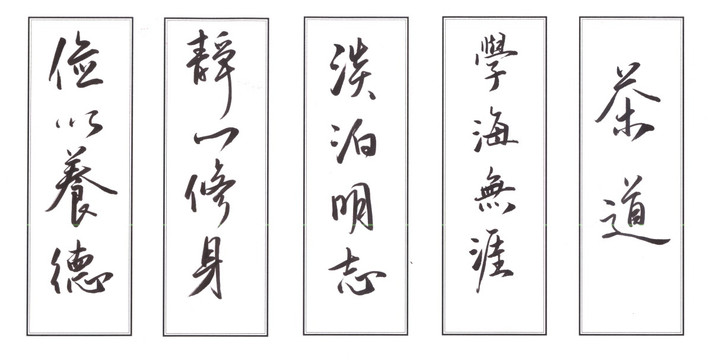 茶道
學海無涯
淡泊明志
靜以修身
儉以養德